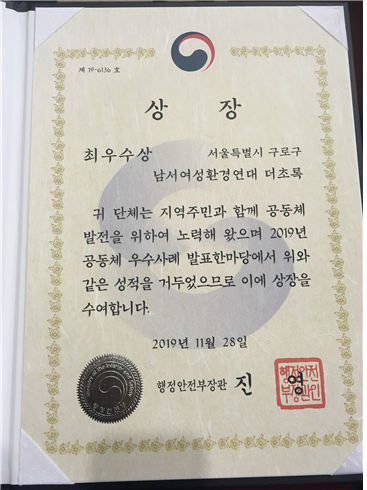 제 19-6136 호
상 장
최우수상 서울특별시 구로구
남서여성환경연대 더초록
귀 단체는 지역주민과 함께 공동체
발전을 위하여 노력해 왔으며 2019년
공동체 우수사례 발표한마당에서 위와
같은 성적을 거두었으므로 이에 상장을
수여합니다.
2019년 11월 28일
행정안전부장관 진 영
행정안전
부장관인